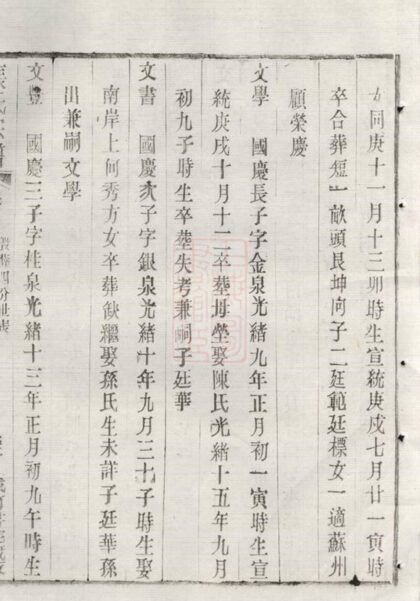 同庚十一月十三卯時生宣統庚戌七月廿一寅時
卒合葬短畝頭艮坤向子二廷範廷標女一適蘇州
顧榮慶
文學　國慶長子字金泉光緒九年正月初一寅時生宣
統庚戌十月十二卒葬母塋娶陳氏光緒十五年九月
初九子時生卒塟失考兼嗣子廷華
文書　國慶次子字銀泉光緒十年九月三十子時生娶
南岸上何秀方女卒葬缺繼娶孫氏生未詳子廷華孫
出兼嗣文學
文豊　國慶三子字桂泉光緒十三年正月初九午時生